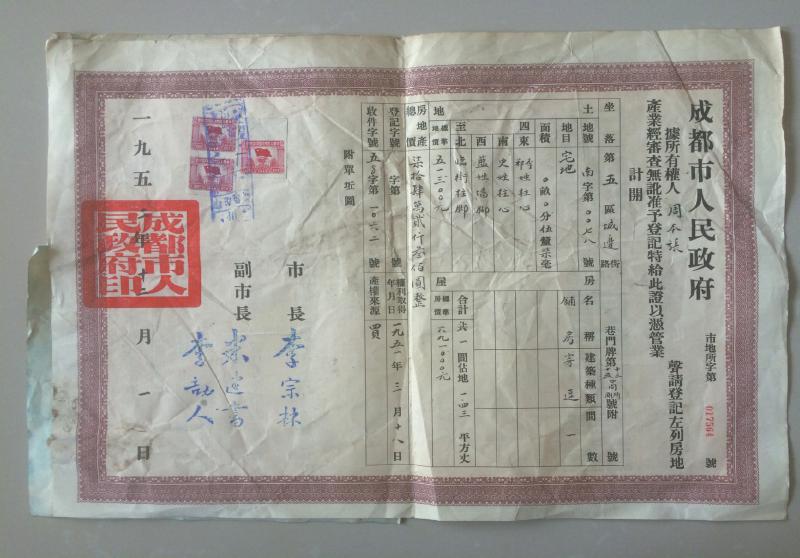 成都市人民政府
市地所字第 017564 號
據所有權人 周 聲請登記左列房地
產業經審查無訛准予登記特給此證以憑管業
計開
坐落 第五區 城邊 街路 巷門牌第 號附 號
土地 地號 南字第00七八號
地目 宅地
面積 0畝0分伍釐柒毫
四至
東
南 史姓柱心
西 藍姓墻腳
北 臨街柱腳
地 標準地價 五一三00元
房屋
名稱 建築種類 間數
鋪房 穿逗 一
合計 共一間佔地 一四三 平方丈
標準房價 六九一000元
房地產總價 柒拾肆萬貳仟叁佰圓整
登記字號 字第 號
權利取得年月日 一九五一年三月十八日
收件字號 五字第一0六二號
產權來源 買
附單坵圖
市長 李宗林
副市長
李劼人
一九五 年十二月一日
成都市人民政府印